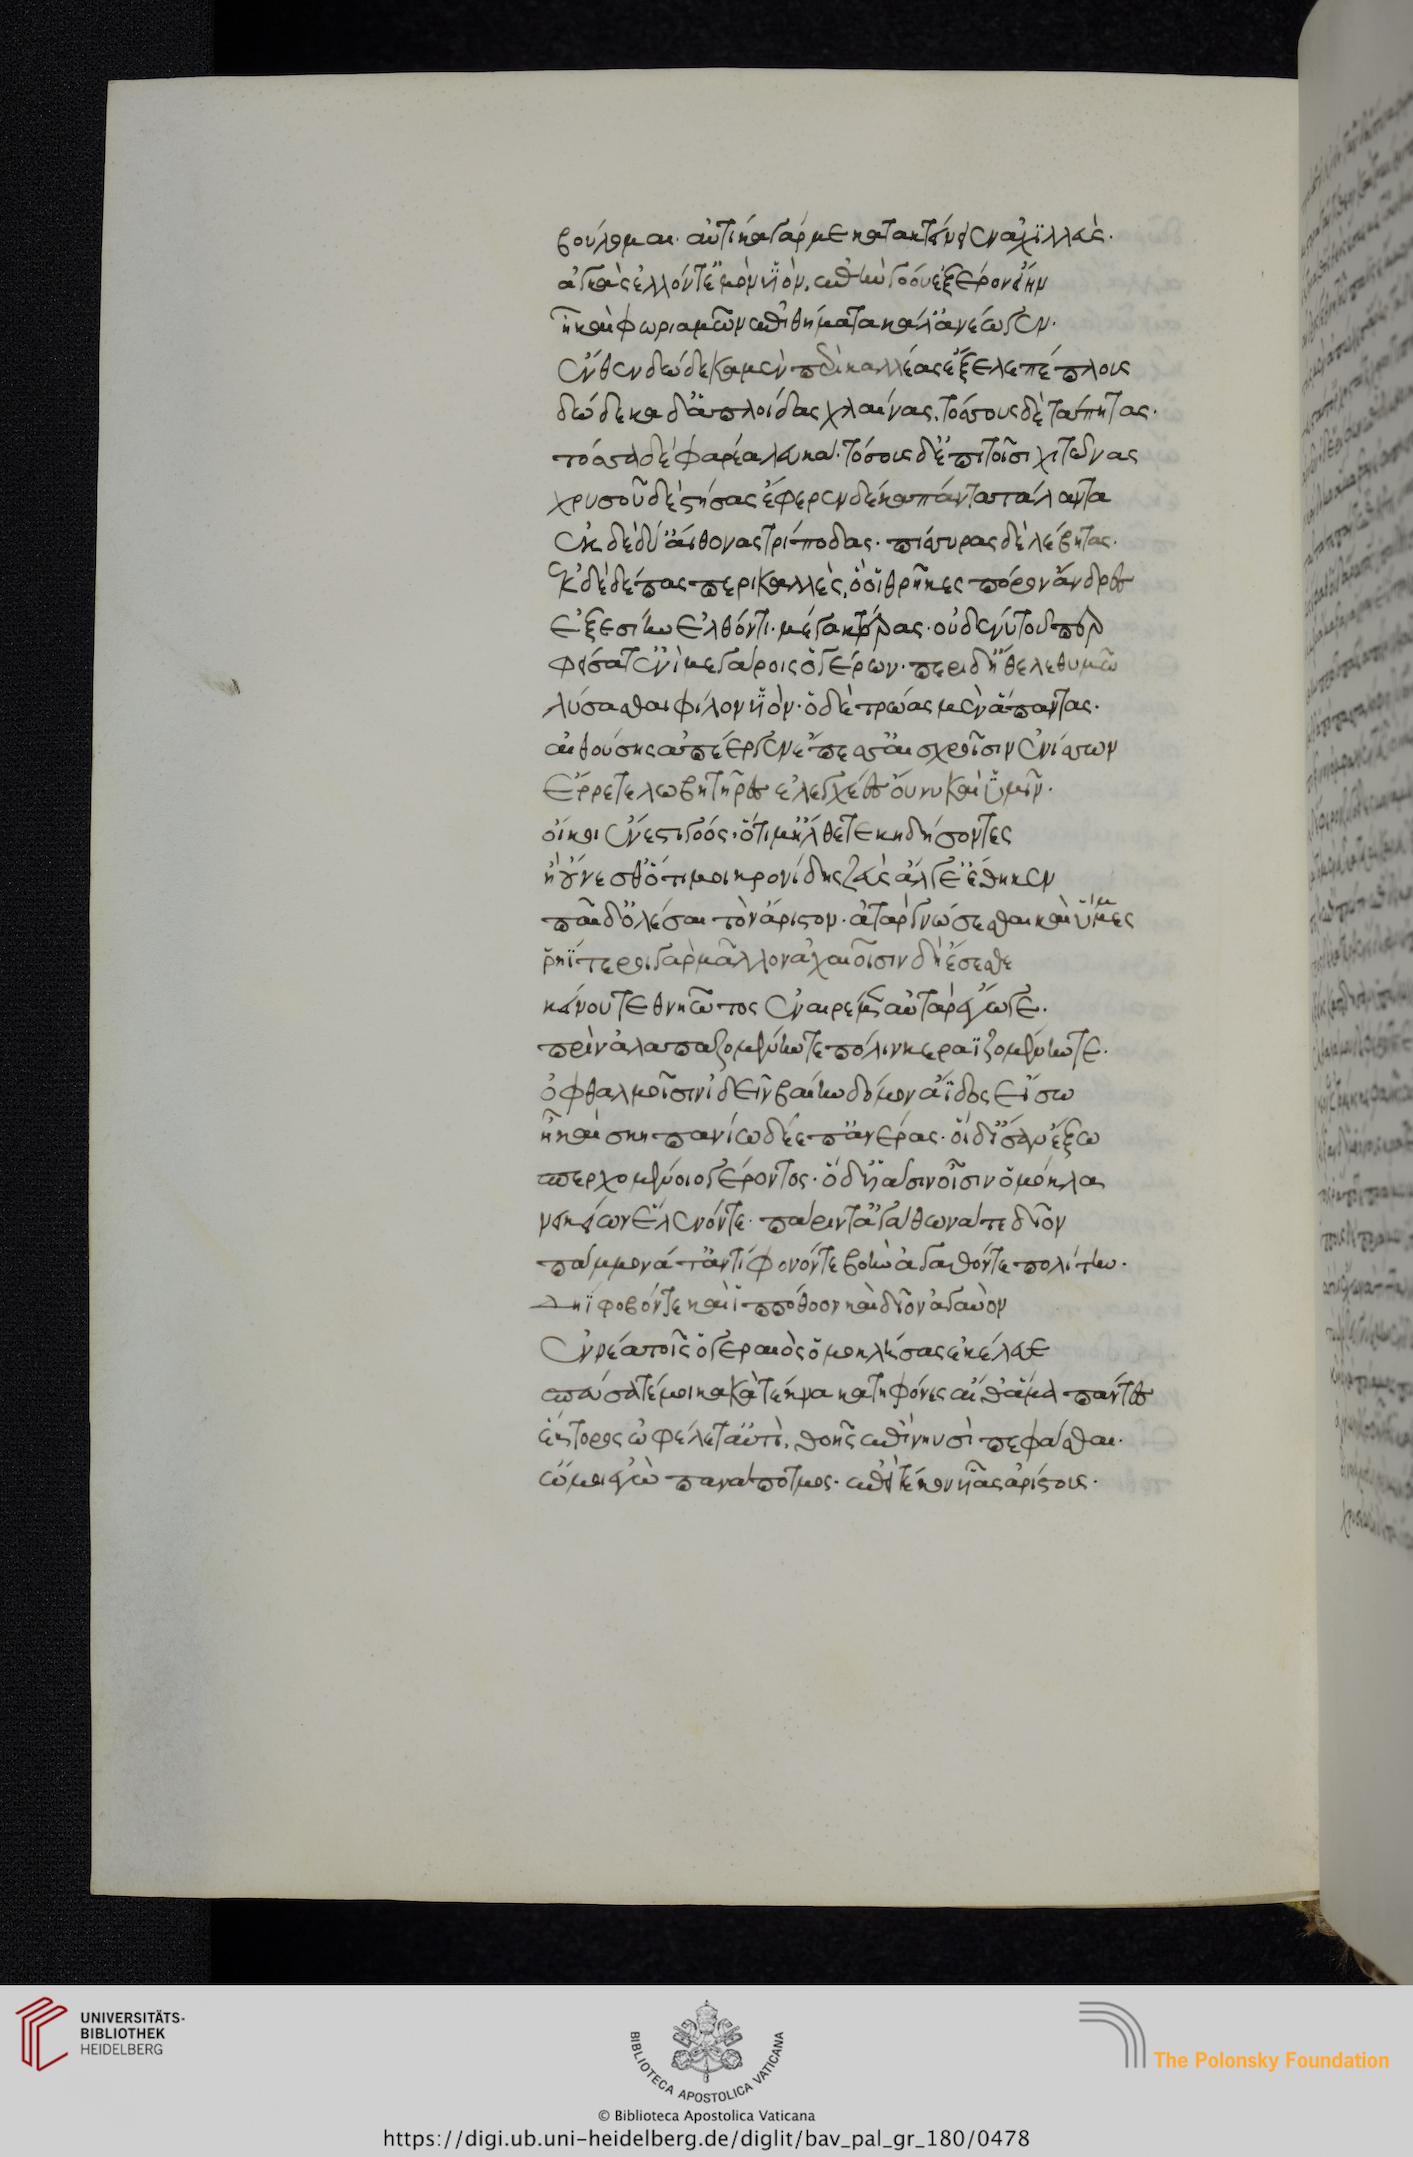 βούλομαι· αὐτίκα γάρ με κατακτείνειεν ἀχϊλλεὺς·
ἀγκὰς ἑλλόντ' ἐμὸν υἱὸν, ἐπὴν γόου ἐξ ἔρον εἵην
ἦ καὶ φωριαμῶν ἐπιθήματα κάλ' ἀνέωγεν·
ἔνθεν δώδεκα μὲν περικαλλέας ἔξελε πέπλους
δώδεκα δ' ἁπλοίδας χλαίνας, τόσους δὲ τάπητας·
τόσσα δὲ φάρεα λευκὰ· τόσους δ' ἐπὶ τοῖσι χιτῶνας
χρυσοῦ δὲ στήσας ἔφερεν δέκα πάντα τάλαντα
ἐκ δὲ δύ' αἴθονας τρίποδας· πίσυρας δὲ λέβητας·
ἐκ δὲ δέπας περικαλλὲς, ὅ οἱ θρῆκες πόρον ἄνδρες
ἐξεσίην ἐλθόντι· μέγα κτέρας· οὐδέ νυ τοῦ περ
φείσατ' ἐνὶ μεγάροις ὁ γέρων· περι δ' ἤθελε θυμῶ
λύσασθαι φίλον υἱὸν· ὁ δὲ τρῶας μὲν ἅπαντας·
αἰθούσης ἀπέεργεν ἔπεσσ' αἰσχροῖσιν ἐνίσσων
ἔρρετε λωβητῆρες ἐλεγχέες οὔ νυ καὶ ὑμῖν·
οἴκοι ἔνεστι γόος· ὅτι μ' ἤλθετε κηδήσοντες
ἢ οὔνεσθ' ὅτι μοι κρονίδης ζεὺς ἄλγε' ἔθηκεν
παῖδ' ὀλέσαι τὸν ἄριστον· ἀτὰρ γνώσεσθαι καὶ ὔμμες
ῥηΐτεροι γὰρ μᾶλλον ἀχαιοῖσιν δὴ ἔσεσθε
κείνου τεθνηῶτος ἐναιρέμεν αὐτὰρ ἔγωγε·
πρὶν ἀλαπαζομένην τε πόλιν κεραϊζομένην τε·
ὀφθαλμοῖσιν ἰδεῖν βαίην δόμον ἄϊδος εἴσω
ἦ καὶ σκηπανίω δίεπ' ἀνέρας· οἱ δ' ἴσαν ἔξω
σπερχομένοιο γέροντος· ὁ δ' υἱάσιν οἷσιν ὁμόκλα
νεικείων ἕλενόν τε· πάριν τ' ἀγάθωνά τε δῖον
πάμμονά τ' ἀντίφονόν τε βοὴν ἀγαθόν τε πολίτην·
Δηΐφοβόν τε καὶ ἱππόθοον καὶ δῖον ἀγαυὸν
ἐννέα τοῖς ὁ γεραιὸς ὁμοκλήσας ἐκέλευε
σπεύσατέ μοι κακὰ τέκνα κατηφόνες αἴθ' ἅμα πάντες
ἕκτορος ὠφέλετ' ἀντὶ, θοῆς ἐπὶ νηυσὶ πεφάσθαι·
ὤ μοι ἐγὼ πανάποτμος· ἐπεὶ τέκον υἷας ἀρίστους·
UNIVERSITÄTS-
BIBLIOTHEK
HEIDELBERG
BIBLIOTECA APOSTOLICA VATICANA
The Polonsky Foundation
© Biblioteca Apostolica Vaticana
https://digi.ub.uni-heidelberg.de/diglit/bav_pal_gr_180/0478